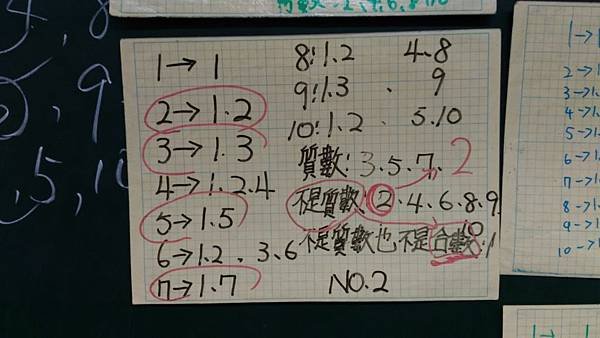 1→1
2→1.2
3→1.3
4→1.2.4
5→1.5
6→1.2、3.6
7→1.7
8!1.2 4.8
9!1.3、9
10!1.2、5.10
質數!3.5.7.2
不是質數!2.4.6.8.9.10
不是質數也不是合數:1
NO.2
4,8
,9
,5,10
1→1
2→1.
3→1.
4→1.
5→1.
6→1.
7→1.
8→1.
9→1.
10→1.
1→1